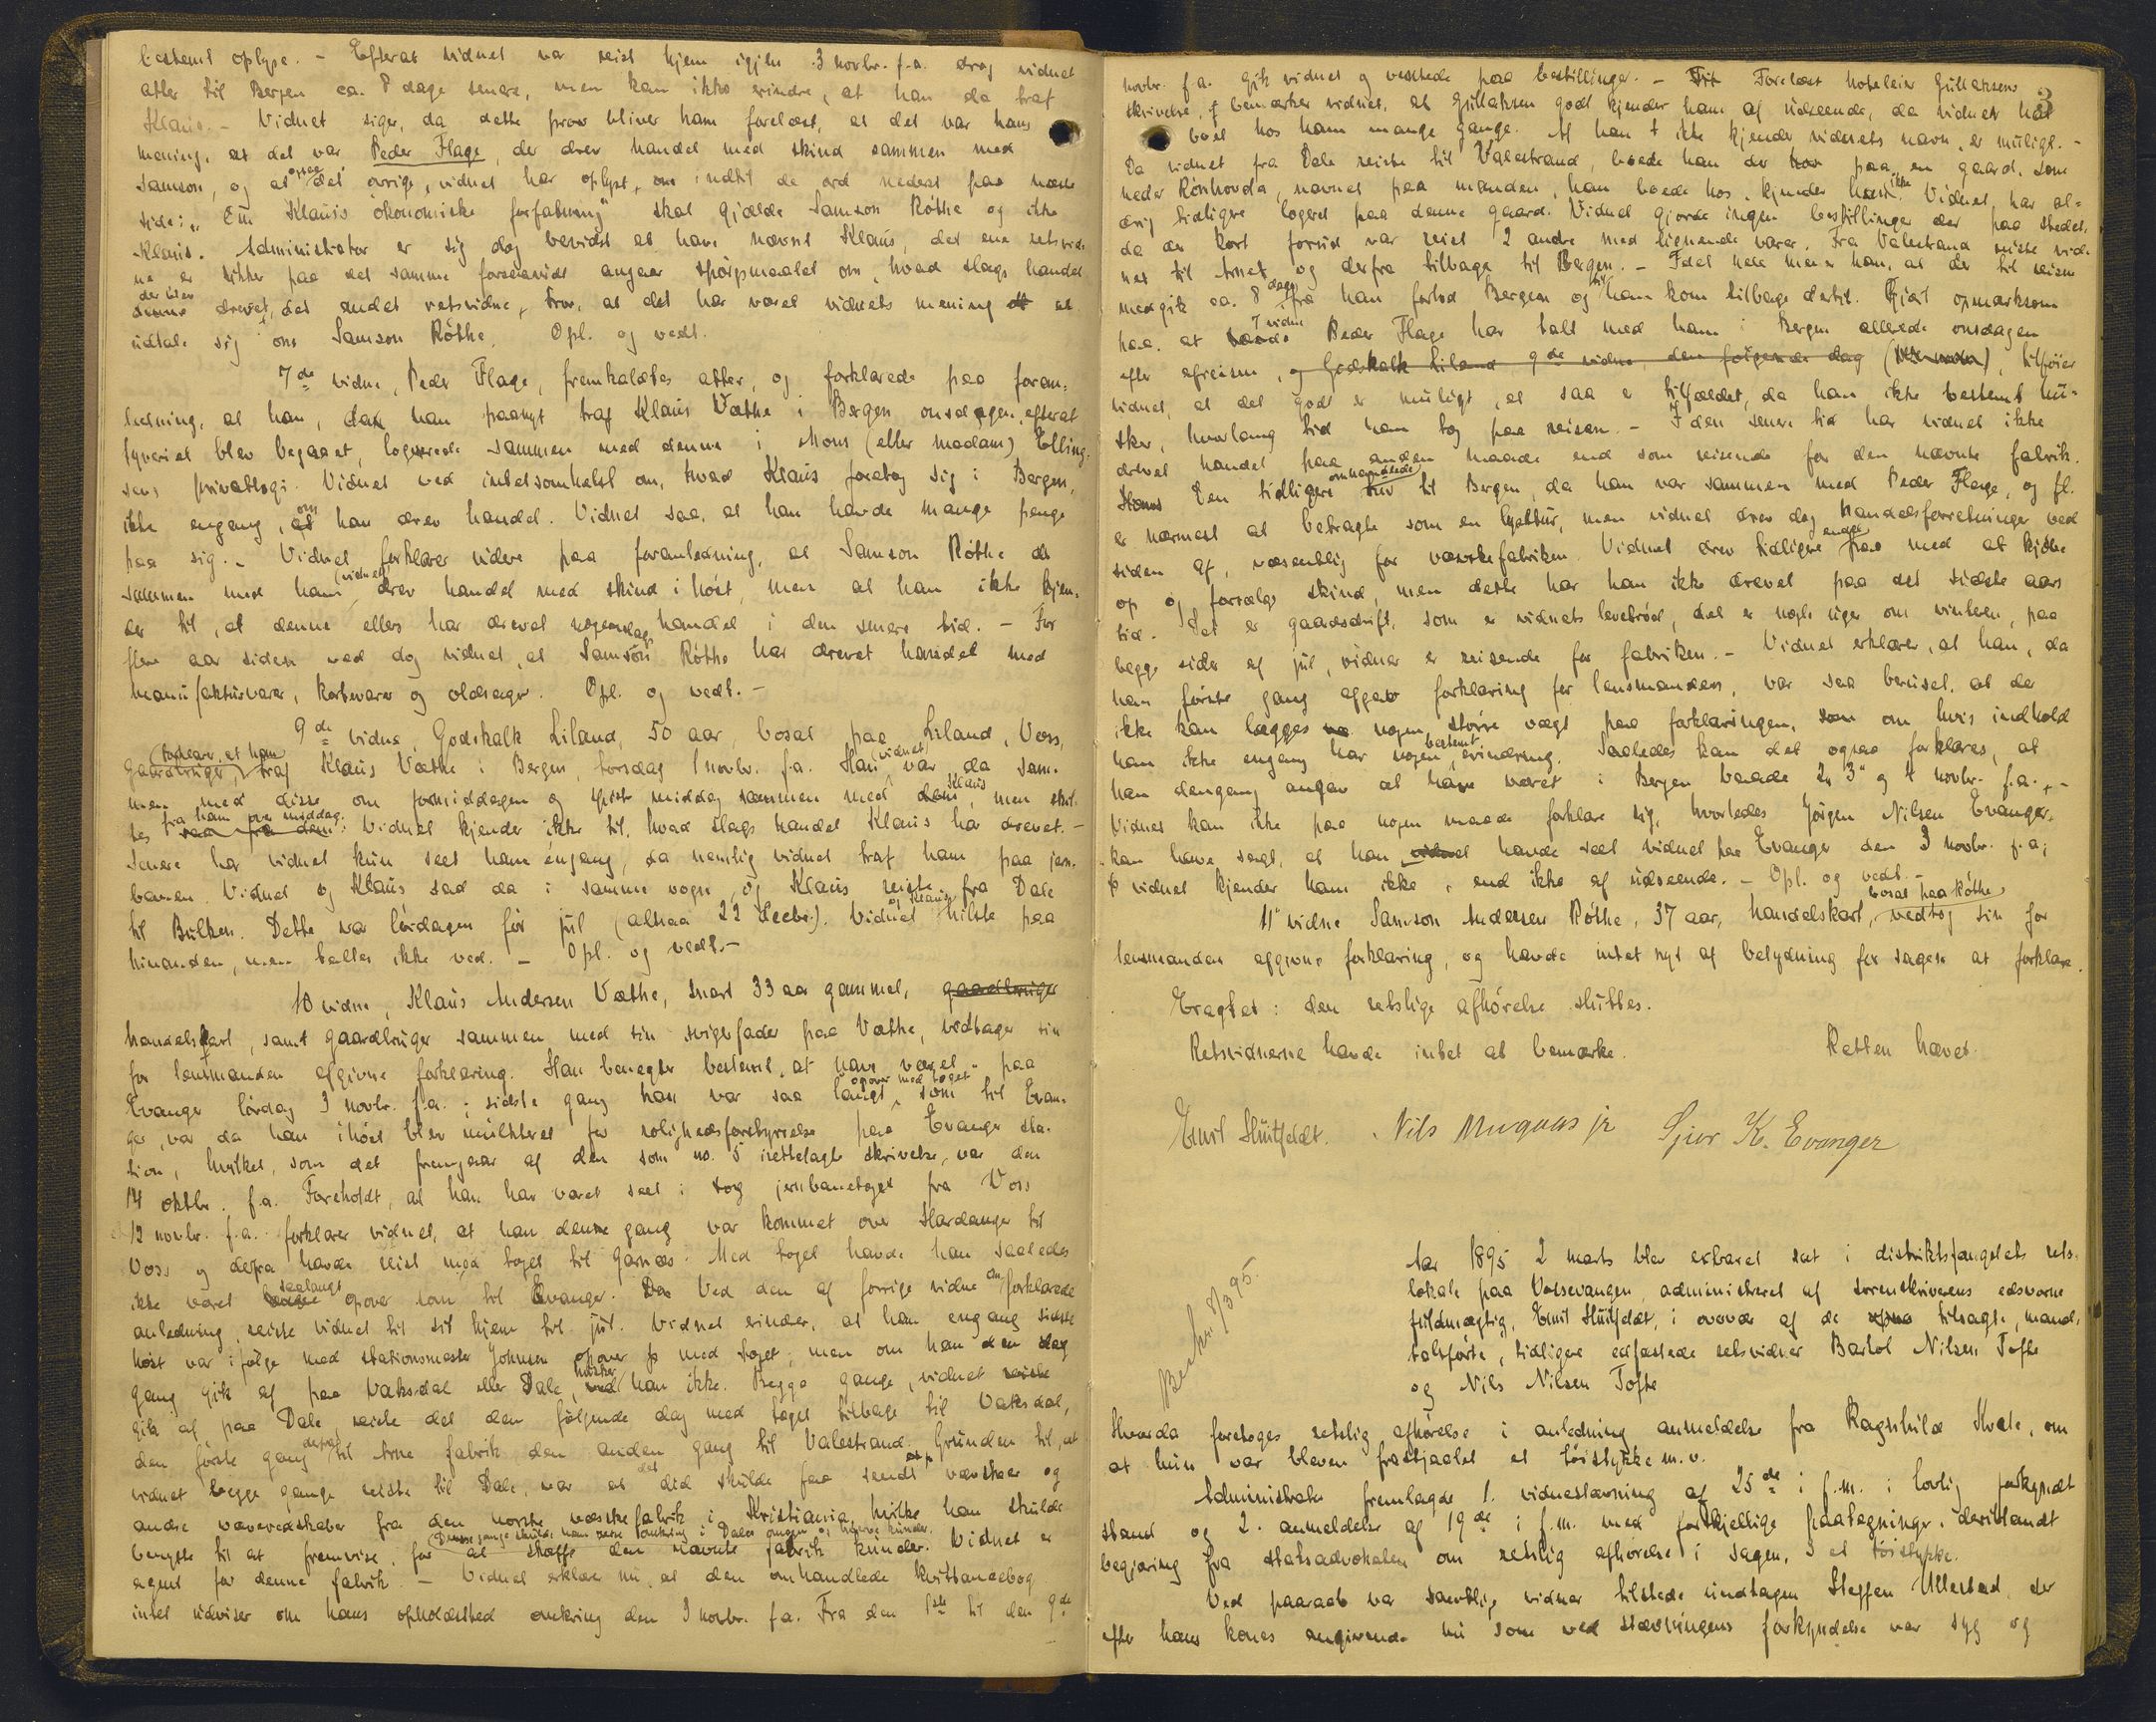 bestemt oplyse. - Efterat vidnet var reist hjem igjen 3 novbr. f.a. drog vidnet
atter til Bergen ca. 8 dage senere, men kan ikke erindre, at han da traf
Klaus. - Vidnet siger, da dette prov bliver ham forelæst, at det var hans
mening, at det var Peder Flage, der drev handel med skind sammen med
Samson, og at ogsaa det øvrige, vidnet har oplyst, om indtil de ord nederst paa næste
side: "Om Klaus's økonomiske forfatning" skal gjælde Samson Röthe og ikke
Klaus. Administrator er sig dog bevidst at have nævnt Klaus, det ene retsvid-
ne er sikker paa det samme forsaavidt angaar spörgsmaalet om, hvad slags handel
der blev drevet, det andet retsvidne, tror, at det har været vidnets mening at
udtale sig om Samson Röthe. Opl. og vedt.
7de vidne, Peder Flage, fremkaldtes atter, og forklarede paa foran-
ledning, at han, da han paanyt traf Klaus Væthe i Bergen onsdagen, efterat
tyveriet blev begaaet, logerede sammen med denne i Mons (eller madam) Elling-
sens privatlogi. Vidnet ved intetsomhelst om, hvad Klaus foretog sig i Bergen,
ikke engang, om han drev handel. Vidnet saa, at han havde mange penge
paa sig. - Vidnet forklarer videre paa foranledning, at Samson Röthe de
sammen med ham (vidnet) drev handel med skind i höst, men at han ikke kjen-
der til, at denne ellers har drevet nogenslags handel i den senere tid. - For
flere aar siden ved dog vidnet, at Samson Röthe har drevet handel med
manufakturvarer, kortevarer og oldsager. Opl. og vedt. -
9de vidne, Godskalk Liland, 50 aar, bosat paa Liland, Voss,
gaardbruger, (forklarer, at han) traf Klaus Væthe i Bergen, torsdag 1 novbr. f.a. Han (vidnet) var da sam-
men med disse om formiddagen og spiste middag sammen med Klaus, men skil-
tes fra ham over middag. Vidnet kjender ikke til, hvad slags handel Klaus har drevet. -
Senere har vidnet kun seet ham éngang, da nemlig vidnet traf ham paa jern-
banen. Vidnet og Klaus sad da i samme vogn, og Klaus reiste fra Dale
til Bulken. Dette var lördagen för jul (altsaa 22 Decbr.). Vidnet og Klaus hilste paa
hinanden, men talte ikke ved. - Opl. og vedt. -
10 vidne, Klaus Andersen Væthe, snart 33 aar gammel, gaardbruger
handelskarl, samt gaardbruger sammen med sin svigerfader paa Væthe, vedtager sin
for lensmanden afgivne forklaring. Han benegter bestemt, at have været paa
Evanger lördag 3 novbr. f.a.; sidste gang han var saa langt opover med toget som til Evan-
ger, var da han ihöst blev mulkteret for rolighedsforstyrrelse paa Evanger sta-
tion, hvilket, som det fremgaar af den som no. 5 irettelagte skrivelse, var den
14 oktbr. f.a. Foreholdt, at han har været seet i tog jernbanetoget fra Voss
12 novbr. f.a. forklarer vidnet, at han denne gang var kommet over Hardanger til
Voss og derfra havde reist med toget til Garnæs. Med toget havde han saaledes
ikke været saalangt opover som til Evanger. Ved den af forrige vidne omforklarede
anledning reiste vidnet til sit hjem til jul. Vidnet erindrer, at han engang sidste
höst var ifölge med stationsmester Johnsen opover med toget; men om han den dag
gang gik af paa Vaksdal eller Dale, husker han ikke. Begge gange, vidnet reiste
gik af paa Dale, reiste det den fölgende dag med toget tilbage til Vaksdal,
den förste gang derfra til Arne fabrik den anden gang til Valestrand. Grunden til, at
vidnet begge gange reiste til Dale, var at det did skulde faa sendt vævskeer og
andre væveredskaber fra den norske væskefabrik i Kristiania, hvilke han skulde
Denne gang skulde han reise omkring i Dales omegn og hverve kunder.
benytte til at fremvise, for at skaffe den nævnte fabrik kunder. Vidnet er
agent for denne fabrik. - Vidnet erklærer nu, at den omhandlede kvittancebog
intet udviser om hans opholdssted omkring den 3 novbr. f.a. Fra den 1ste til den 9de
3
novbr. f.a. gik vidnet og ventede paa bestillinger. - Forelæst hoteleier Gullaksens
skrivelse, bemærker vidnet, at Gullaksen godt kjender ham af udseende, da vidnet har
boet hos ham mange gange. At han ikke kjender vidnets navn, er muligt. -
Da vidnet fra Dale reiste til Valestrand, boede han der paa en gaard, som
heder Rönhovda, navnet paa manden, han boede hos, kjender han ikke. Vidnet har al-
drig tidligere logeret paa denne gaard. Vidnet gjorde ingen bestillinger der paa stedet,
da der kort forud var reist 2 andre med lignende varer. Fra Valestrand reiste vid-
net til Arne, og derfra tilbage til Bergen. - Idet hele mener han, at der til reisen
medgik ca. 8 dage fra han forlod Bergen og til han kom tilbage dertil. Gjort opmærksom
paa, at 7 vidne Peder Flage har talt med ham i Bergen allerede onsdagen
efter afreisen, og Godskalk Liland 9de vidne, den følgende dag, tilföier
vidnet, at det godt er muligt, at saa er tilfældet, da han ikke bestemt hu-
sker, hvorlang tid han tog paa reisen. - I den senere tid har vidnet ikke
drevet handel paa anden maade end som reisende for den nævnte fabrik.
Den tidligere omhandlede tur til Bergen, da han var sammen med Peder Flage, og fl.
er nærmest at betragte som en lysttur, men vidnet drev dog handelsforretninger ved
siden af, væsentlig for væskefabriken. Vidnet drev tidligere endel med at kjöbe
op og forsælge skind, men dette har han ikke drevet paa det sidste aars
tid. Det er gaardsdrift, som er vidnets levebröd, det er nogle uger om vinteren, paa
begge sider af jul, vidnet er reisende for fabriken. - Vidnet erklærer, at han, da
han förste gang afgav forklaring for lensmanden, var saa beruset, at der
ikke kan lægges nogen större vægt paa forklaringen, om hvis indhold
han ikke engang har nogen bestemt erindring. Saaledes kan det ogsaa forklares, at
han dengang angav at have været i Bergen baade 2, 3 og 4 novbr. f.a. -
Vidnet kan ikke paa nogen maade forklare sig, hvorledes Jörgen Nilsen Evanger
kan have sagt, at han havde seet vidnet paa Evanger den 3 novbr. f.a;
vidnet kjender ham ikke, end ikke af udseende. - Opl. og vedt. -
11 vidne Samson Andersen Röthe, 37 aar, handelskarl, bosat paa Röthe, vedtog sin for
lensmanden afgivne forklaring, og havde intet nyt af betydning for sagen at forklare.
Eragtet: den retslige afhörelse sluttes.
Retsvidnerne havde intet at bemærke. Retten hævet.
Emil Huitfeldt. Nils Mugaas jr Sjur K. Evanger
Aar 1895 2 marts blev extraret sat i distriktsfængslets rets-
lokale paa Vossevangen, administreret af sorenskriverens edsvorne
fuldmægtig, Emil Huitfeldt, i overvær af de tilsagte, mand-
talsförte, tidligere edfæstede retsvidner Bartol Nilsen Tofte
og Nils Nilsen Tofte
Hvorda foretoges retslig afhörelse i anledning anmeldelse fra Ragnhild Kvale, om
at hun var bleven frastjaalet et töistykke m.v.
Administrator fremlagde 1. vidnestævning af 25de i f.m. i lovlig forkyndt
stand og 2. anmeldelse af 19de i f.m. med forskjellige paategninger, deriblandt
begjæring fra statsadvokaten om retslig afhörelse i sagen, 3 et töistykke.
Ved paaraab var samtlige vidner tilstede undtagen Steffen Ullestad, der
efter hans kones angivende nu som ved stævningens forkyndelse var syg og